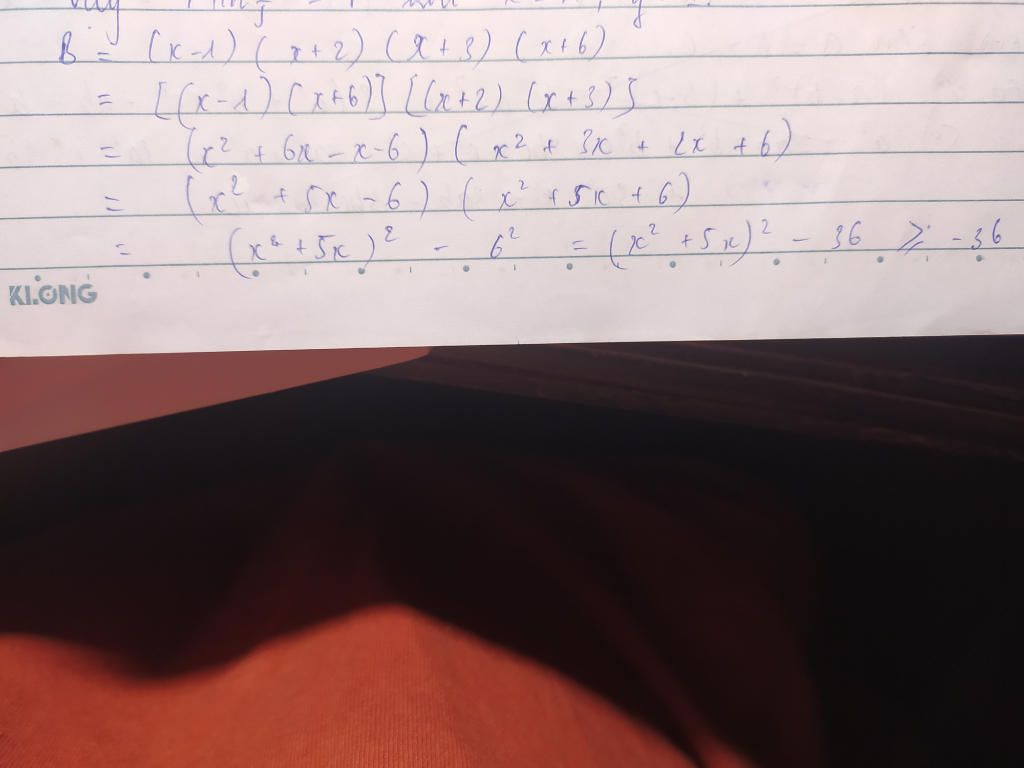 B = (x-1) (x+2) (x+3) (x+6)
= [(x-1) (x+6)] [(x+2) (x+3)]
= (x² + 6x - x - 6) (x² + 3x + 2x + 6)
= (x² + 5x - 6) (x² + 5x + 6)
= (x² + 5x)² - 6² = (x² + 5x)² - 36 ⩾ -36
KLONG